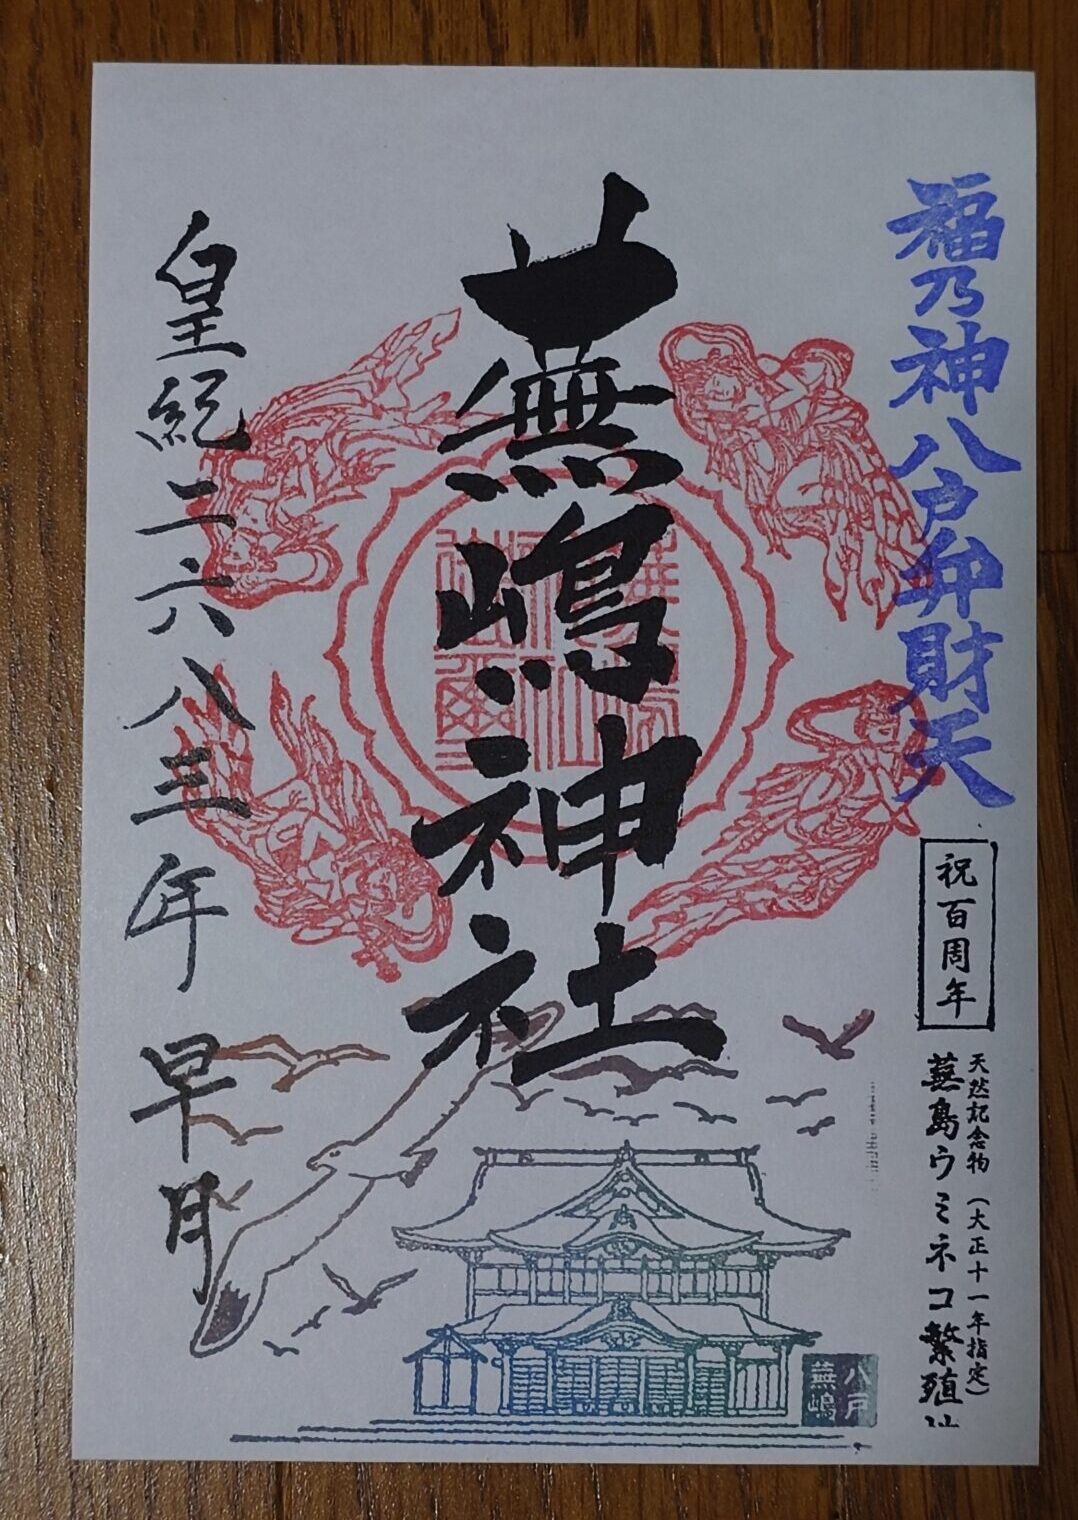 福乃神八戸弁財天
祝百周年
天然記念物（大正十一年指定）
蕪島ウミネコ繁殖
蕪嶋神社
八戸
蕪嶋
皇紀二六八三年 早月